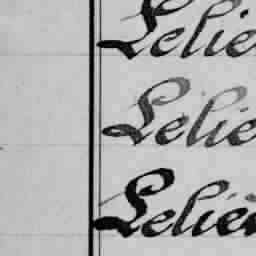 Lelie
Lelie
Lelien